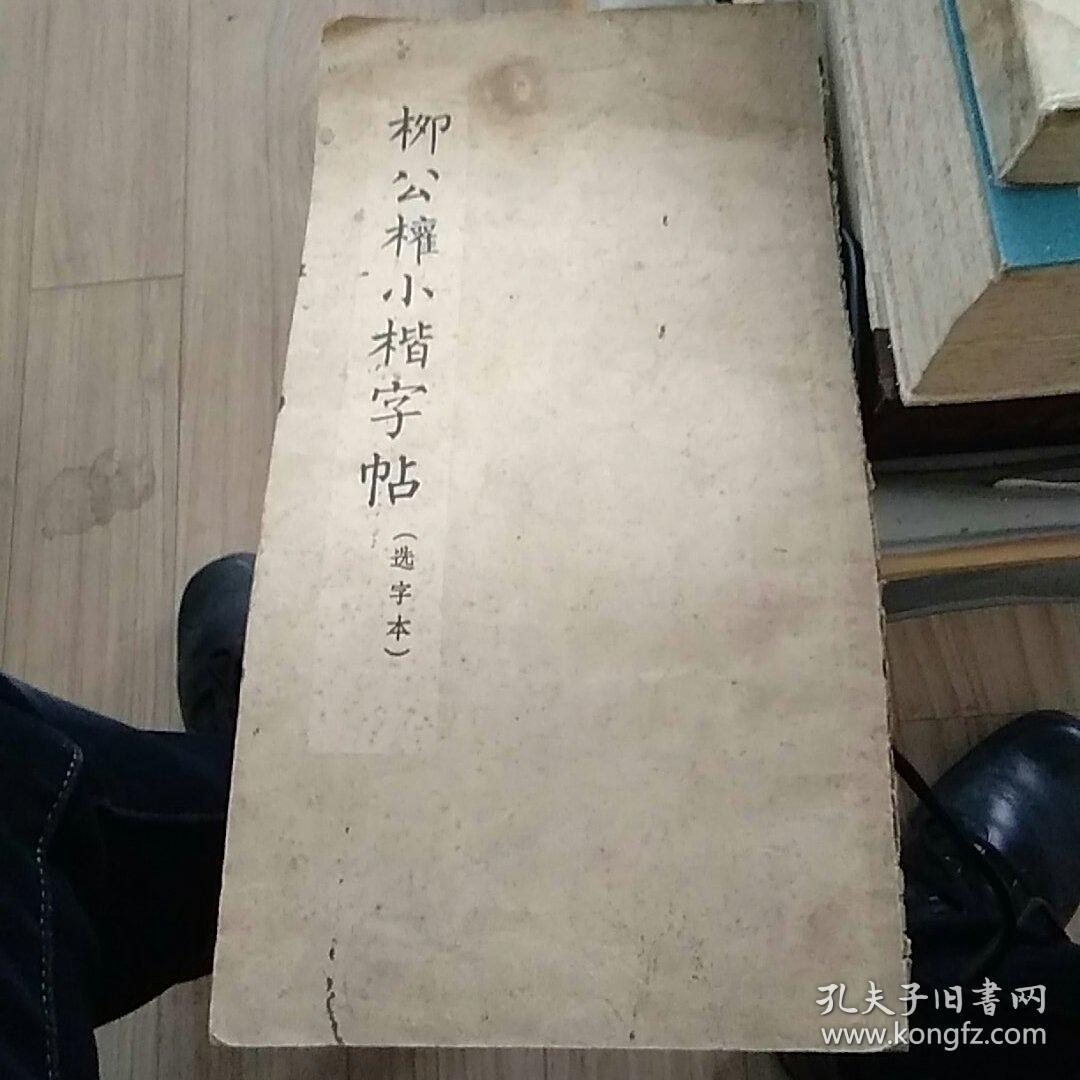 柳公權小楷字帖
（选字本）
孔夫子旧書网
www.kongfz.com